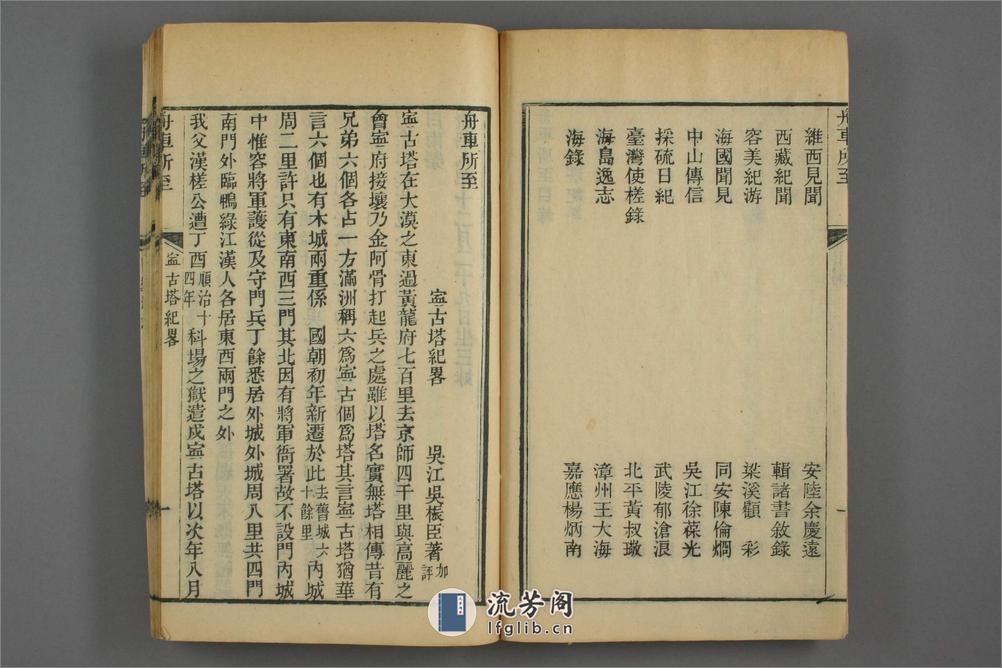 舟車所至
維西見聞 安陸余慶遠
西藏紀聞 輯諸書敘錄
容美紀游 梁溪顧彩
海國聞見 同安陳倫烱
中山傳信 吳江徐葆光
採硫日紀 武陵郁滄浪
臺灣使槎錄 北平黃叔璥
海島逸志 漳州王大海
海錄 嘉應楊炳南
舟車所至
寍古塔紀畧 吳江吳桭臣著 加評
寍古塔在大漠之東過黃龍府七百里去京師四千里與高麗之
會寍府接壤乃金阿骨打起兵之處雖以塔名實無塔相傳昔有
兄弟六個各占一方滿洲稱六爲寍古個爲塔其言寍古塔猶華
言六個也有木城兩重係 國朝初年新遷於此去舊城六十餘里內城
周二里許只有東南西三門其北因有將軍衙署故不設門內城
中惟容將軍護從及守門兵丁餘悉居外城外城周八里共四門
南門外臨鴨綠江漢人各居東西兩門之外
我父漢槎公遭丁酉順治十四年科場之獄造戍寍古塔以次年八月
舟車所至 寍古塔紀畧 一
流芳阁
lfglib.cn